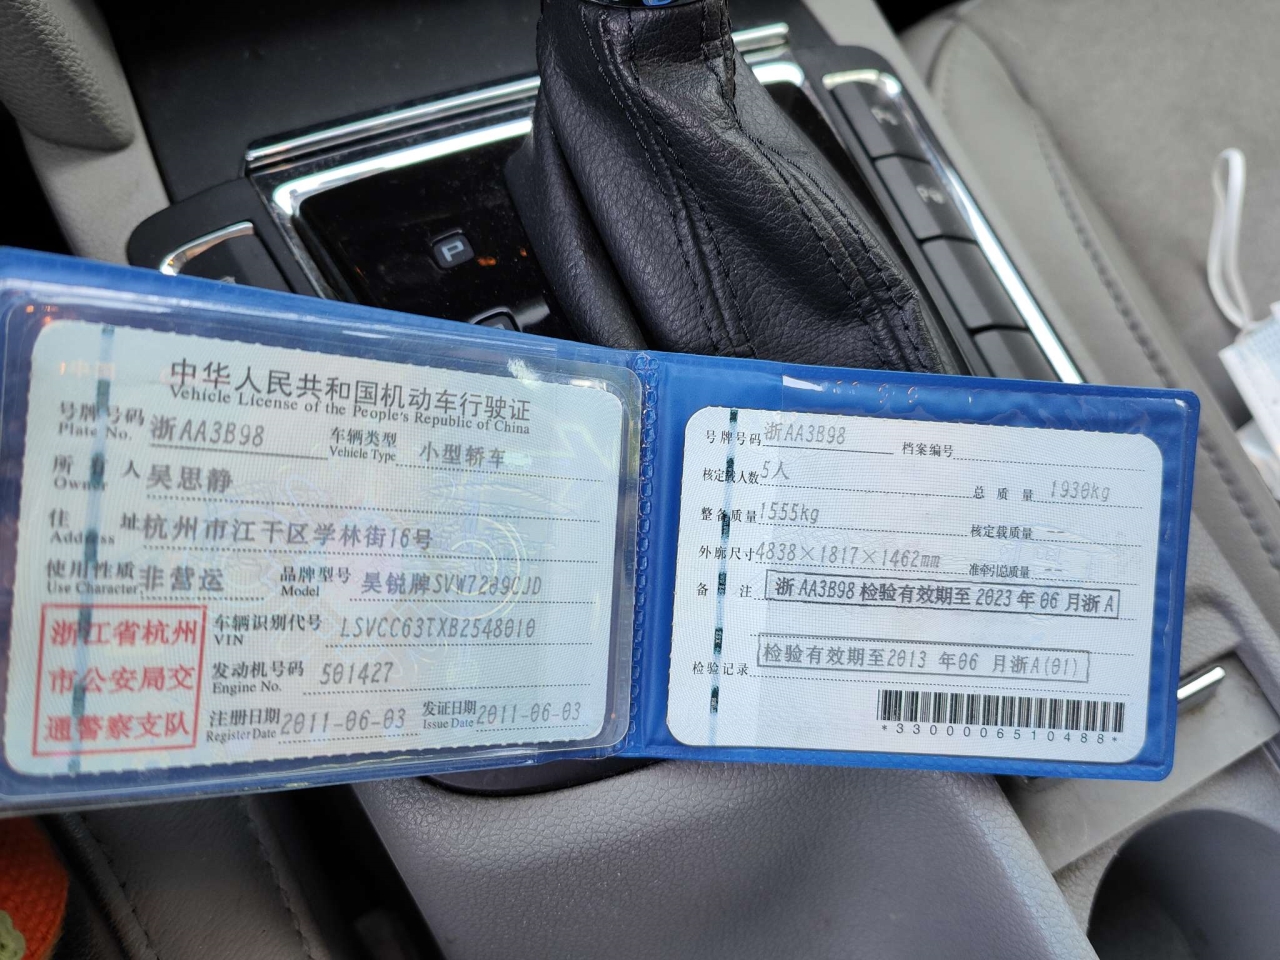 P
中华人民共和国机动车行驶证
Vehicle License of the People's Republic of China
号牌号码 浙AA3B98 车辆类型 小型轿车
Plate No. Vehicle Type
所有人 吴思静
Owner
住址 杭州市江干区学林街16号
Address
使用性质 非营运 品牌型号 昊锐牌SVW7209CJD
Use Character Model
浙江省杭州
市公安局交
通警察支队
车辆识别代号 LSVCC63TXB2548010
VIN
发动机号码 501427
Engine No.
注册日期 2011-06-03 发证日期 2011-06-03
Register Date Issue Date
号牌号码 浙AA3B98 档案编号
核定载人数 5人 总质量 1930kg
整备质量 1555kg 核定载质量 --
外廓尺寸 4838×1817×1462mm 准牵引总质量 --
备注 浙AA3B98 检验有效期至 2023 年 06 月浙A
检验记录 检验有效期至2013 年06 月浙A(01)
*3300006510488*